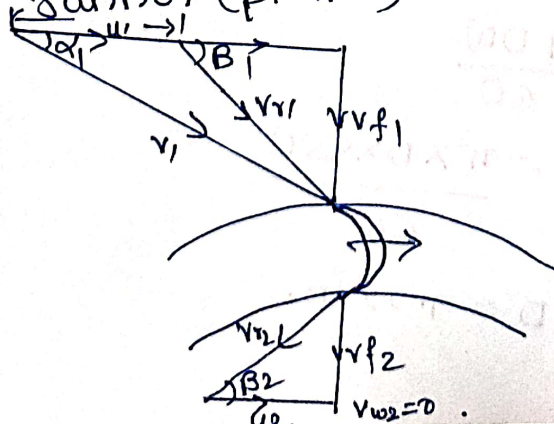 u₁ →|
α₁
B₁
Vr1
Vf₁
V₁
Vr2
Vf2
β2
Vw2=0 .